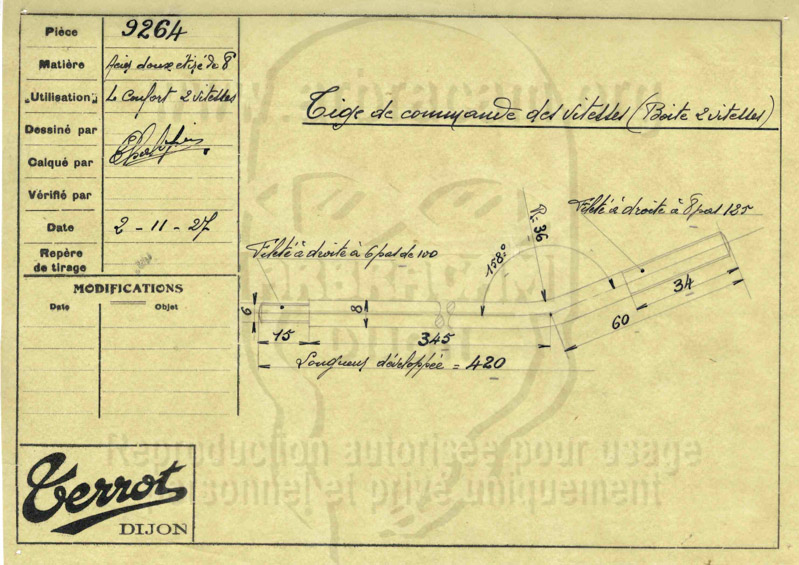 Pièce 9264
Matière Acier doux étiré de 8
Utilisation Le Confort 2 vitesses
Dessiné par
Calqué par
Vérifié par
Date 2 - 11 - 27
Repère
de tirage
MODIFICATIONS
Date Objet
Tige de commande des vitesses (Boîte 2 vitesses)
Fileté à droite à 8 pas 125
R= 36
158°
Fileté à droite à 6 pas de 100
6
8
15
345
34
60
Longueur développée = 420
www.abracam.org
DIJON
Reproduction autorisée pour usage
personnel et privé uniquement
Terrot
DIJON